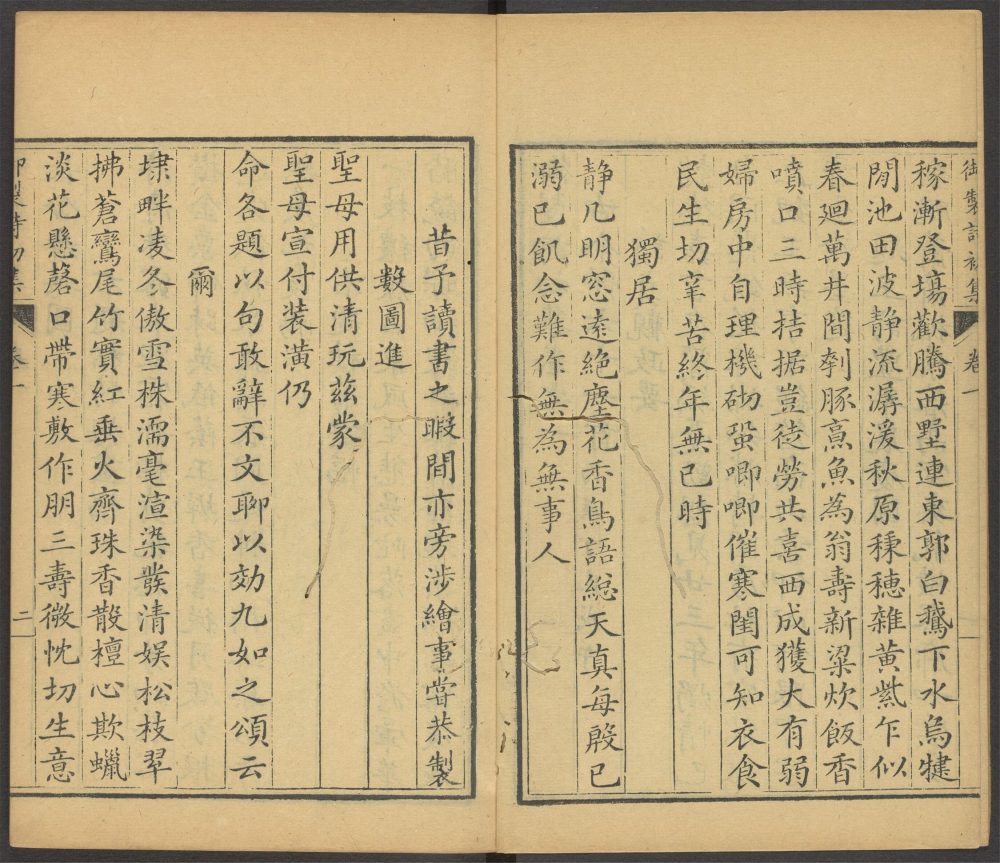 御製詩初集 卷一
稼漸登場歡騰西墅連東郭白鵞下水烏犍
閒池田波靜流潺湲秋原穜穂雜黃紫乍似
春廻萬井間刲豚烹魚為翁壽新粱炊飯香
噴口三時拮据豈徒勞共喜西成獲大有弱
婦房中自理機砌蛩唧唧催寒閨可知衣食
民生切辛苦終年無已時
獨居
靜几明窓遠絕塵花香鳥語總天真每殷已
溺已飢念難作無為無事人
昔予讀書之暇間亦旁涉繪事嘗恭製
數圖進
聖母用供清玩茲蒙
聖母宣付裝潢仍
命各題以句敢辭不文聊以効九如之頌云
爾
埭畔凌冬傲雪株濡毫渲染發清娛松枝翠
拂蒼鸞尾竹實紅垂火齊珠香散檀心欺蠟
淡花懸磬口帶寒敷作朋三壽微忱切生意
御製詩初集 卷一 二